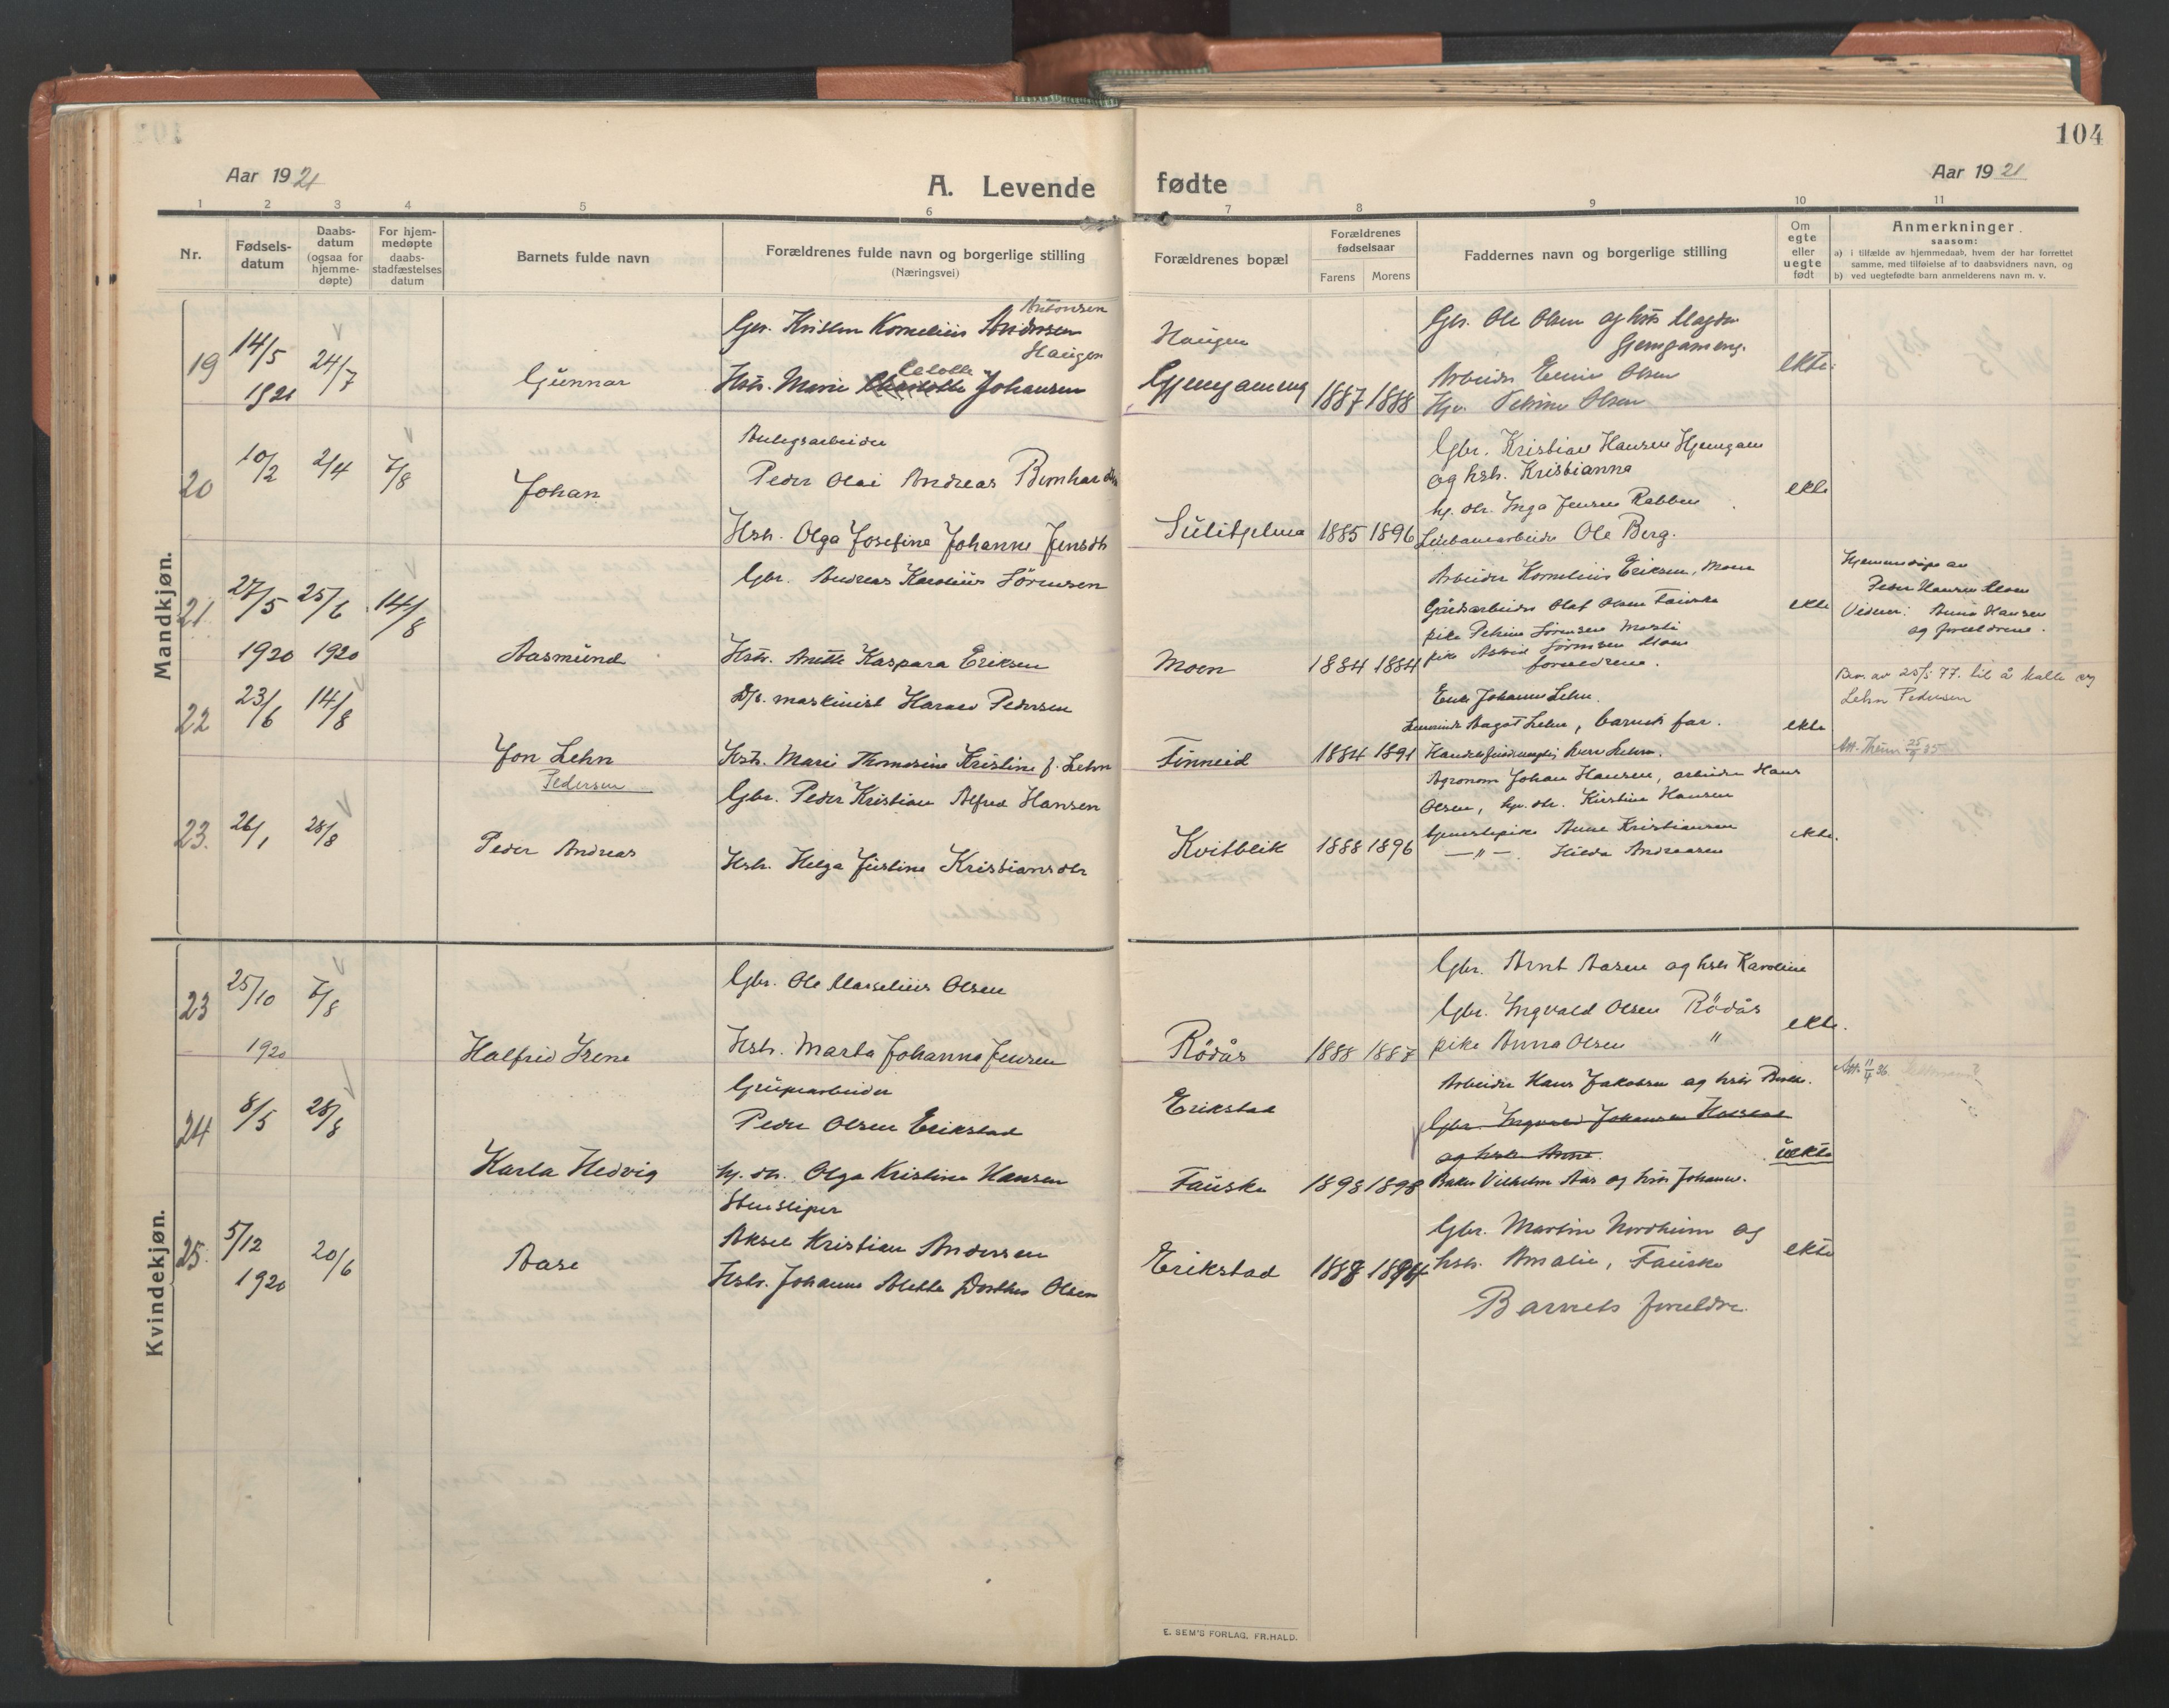 104
Aar 1921
A. Levende fødte
Aar 1921
1 2 3 4 5 6 7 8 9 10 11
Nr.
Fødsels-
datum
Daabs-
datum
(ogsaa for
hjemme-
døpte)
For hjem-
medøpte
daabs-
stadfæstelses
datum
Barnets fulde navn
Forældrenes fulde navn og borgerlige stilling
(Næringsvei)
Forældrenes bopæl
Forældrenes
fødselsaar
Farens Morens
Faddernes navn og borgerlige stilling
Om
egte
eller
uegte
født
Anmerkninger
saasom:
a) i tilfælde av hjemmedaab, hvem der har forrettet
samme, med tilføielse af to daabsvidners navn, og
b) ved uegtefødte barn anmelderens navn m. v.
Mandkjøn.
19
14/5
1921
24/7
Gunnar
Antonsen
Gbr. Kristen Kornelius Andersen
Haugen
Hstr. Marie Johansen
Haugen
Gjemgameng
1887 1888
Gbr. Ole Olsen og hstr Magda
Gjemgameng.
Arbeider Olsen
Hjv. Petrine Olsen
ekte
20
10/2
2/4
7/8
Johan
Anlegsarbeider
Peder Olai Andreas Bernhardsen
Hstr. Olga Josefine Johanne Jensdtr
Sulitjelma
1885 1896
Gbr. Kristian Hansen Hjemgam
og hstr. Kristianna
hj. dtr. Inga Jensen Rabben
Ole Berg.
ekte
21
27/5
1920
25/6
1920
14/8
Aasmund
Gbr. Andreas Karolius Sörensen
Hstr. Anette Kaspara Eriksen
Moen
1884 1884
Arbeider Kornelius Eriksen, Moen
Gårdsarbeider Olaf Olsen Fauske
pike Petrine Sörensen
pike Astrid Sörensen Moen
foreldrene.
ekte
Hjemmedöpt av
Peder Hansen Moen
Vidner: Anna Hansen
og foreldrene.
22
23/6
14/8
Jon Lehn
Pedersen
D/s. maskinist Harald Pedersen
Hstr. Marie Thomasine Kristine f. Lehn
Finneid
1884 1891
Enke Johanne Lehn.
Aagot Lehn, barnets far.
Lehn.
ekte
Bev. av 25/5 77. til å kalle seg
Lehn Pedersen
Att. 25/9 35
23.
26/1
28/8
Peder Andreas
Gbr. Peder Kristian Alfred Hansen
Hstr. Helga Justine Kristiansdtr
Kvitblik
1888 1896
Agronom Johan Hansen, arbeider Hans
Olsen, hj. dtr. Kirstine Hansen
tjenestepike Anne Kristiansen
— " — Hilda Andreasen
ekte.
Kvindekjøn.
23
25/10
1920
7/8
Halfrid Irene
Gbr. Ole Marselius Olsen
Hstr. Marta Johanna Jensen
Rödås
1888 1887
Gbr. Arnt Aasen og hstr Karoline
Gbr. Ingvald Olsen Rödås
pike Anna Olsen "
ekte.
Att. 11/4 36.
24
8/5
28/8
Karla Hedvig
Grubearbeider
Peder Olsen Erikstad
hj. dtr. Olga Kristine Hansen
Erikstad
Fauske
1898 1898
Arbeider Hans Jakobsen og hstr
Gbr. Ingvald Johansen
og hstr Anna.
Baker Vilhelm Aas og hstr Johanne.
uekte
25.
5/12
1920
20/6
Aase
Stensliper
Aksel Kristian Andersen
Hstr. Johanne Alette Dorthea Olsen
Erikstad
1888 1894
Gbr. Martin Nordheim og
hstr. Amalie, Fauske
Barnets foreldre.
ekte
E. SEM'S FORLAG, FR.HALD.